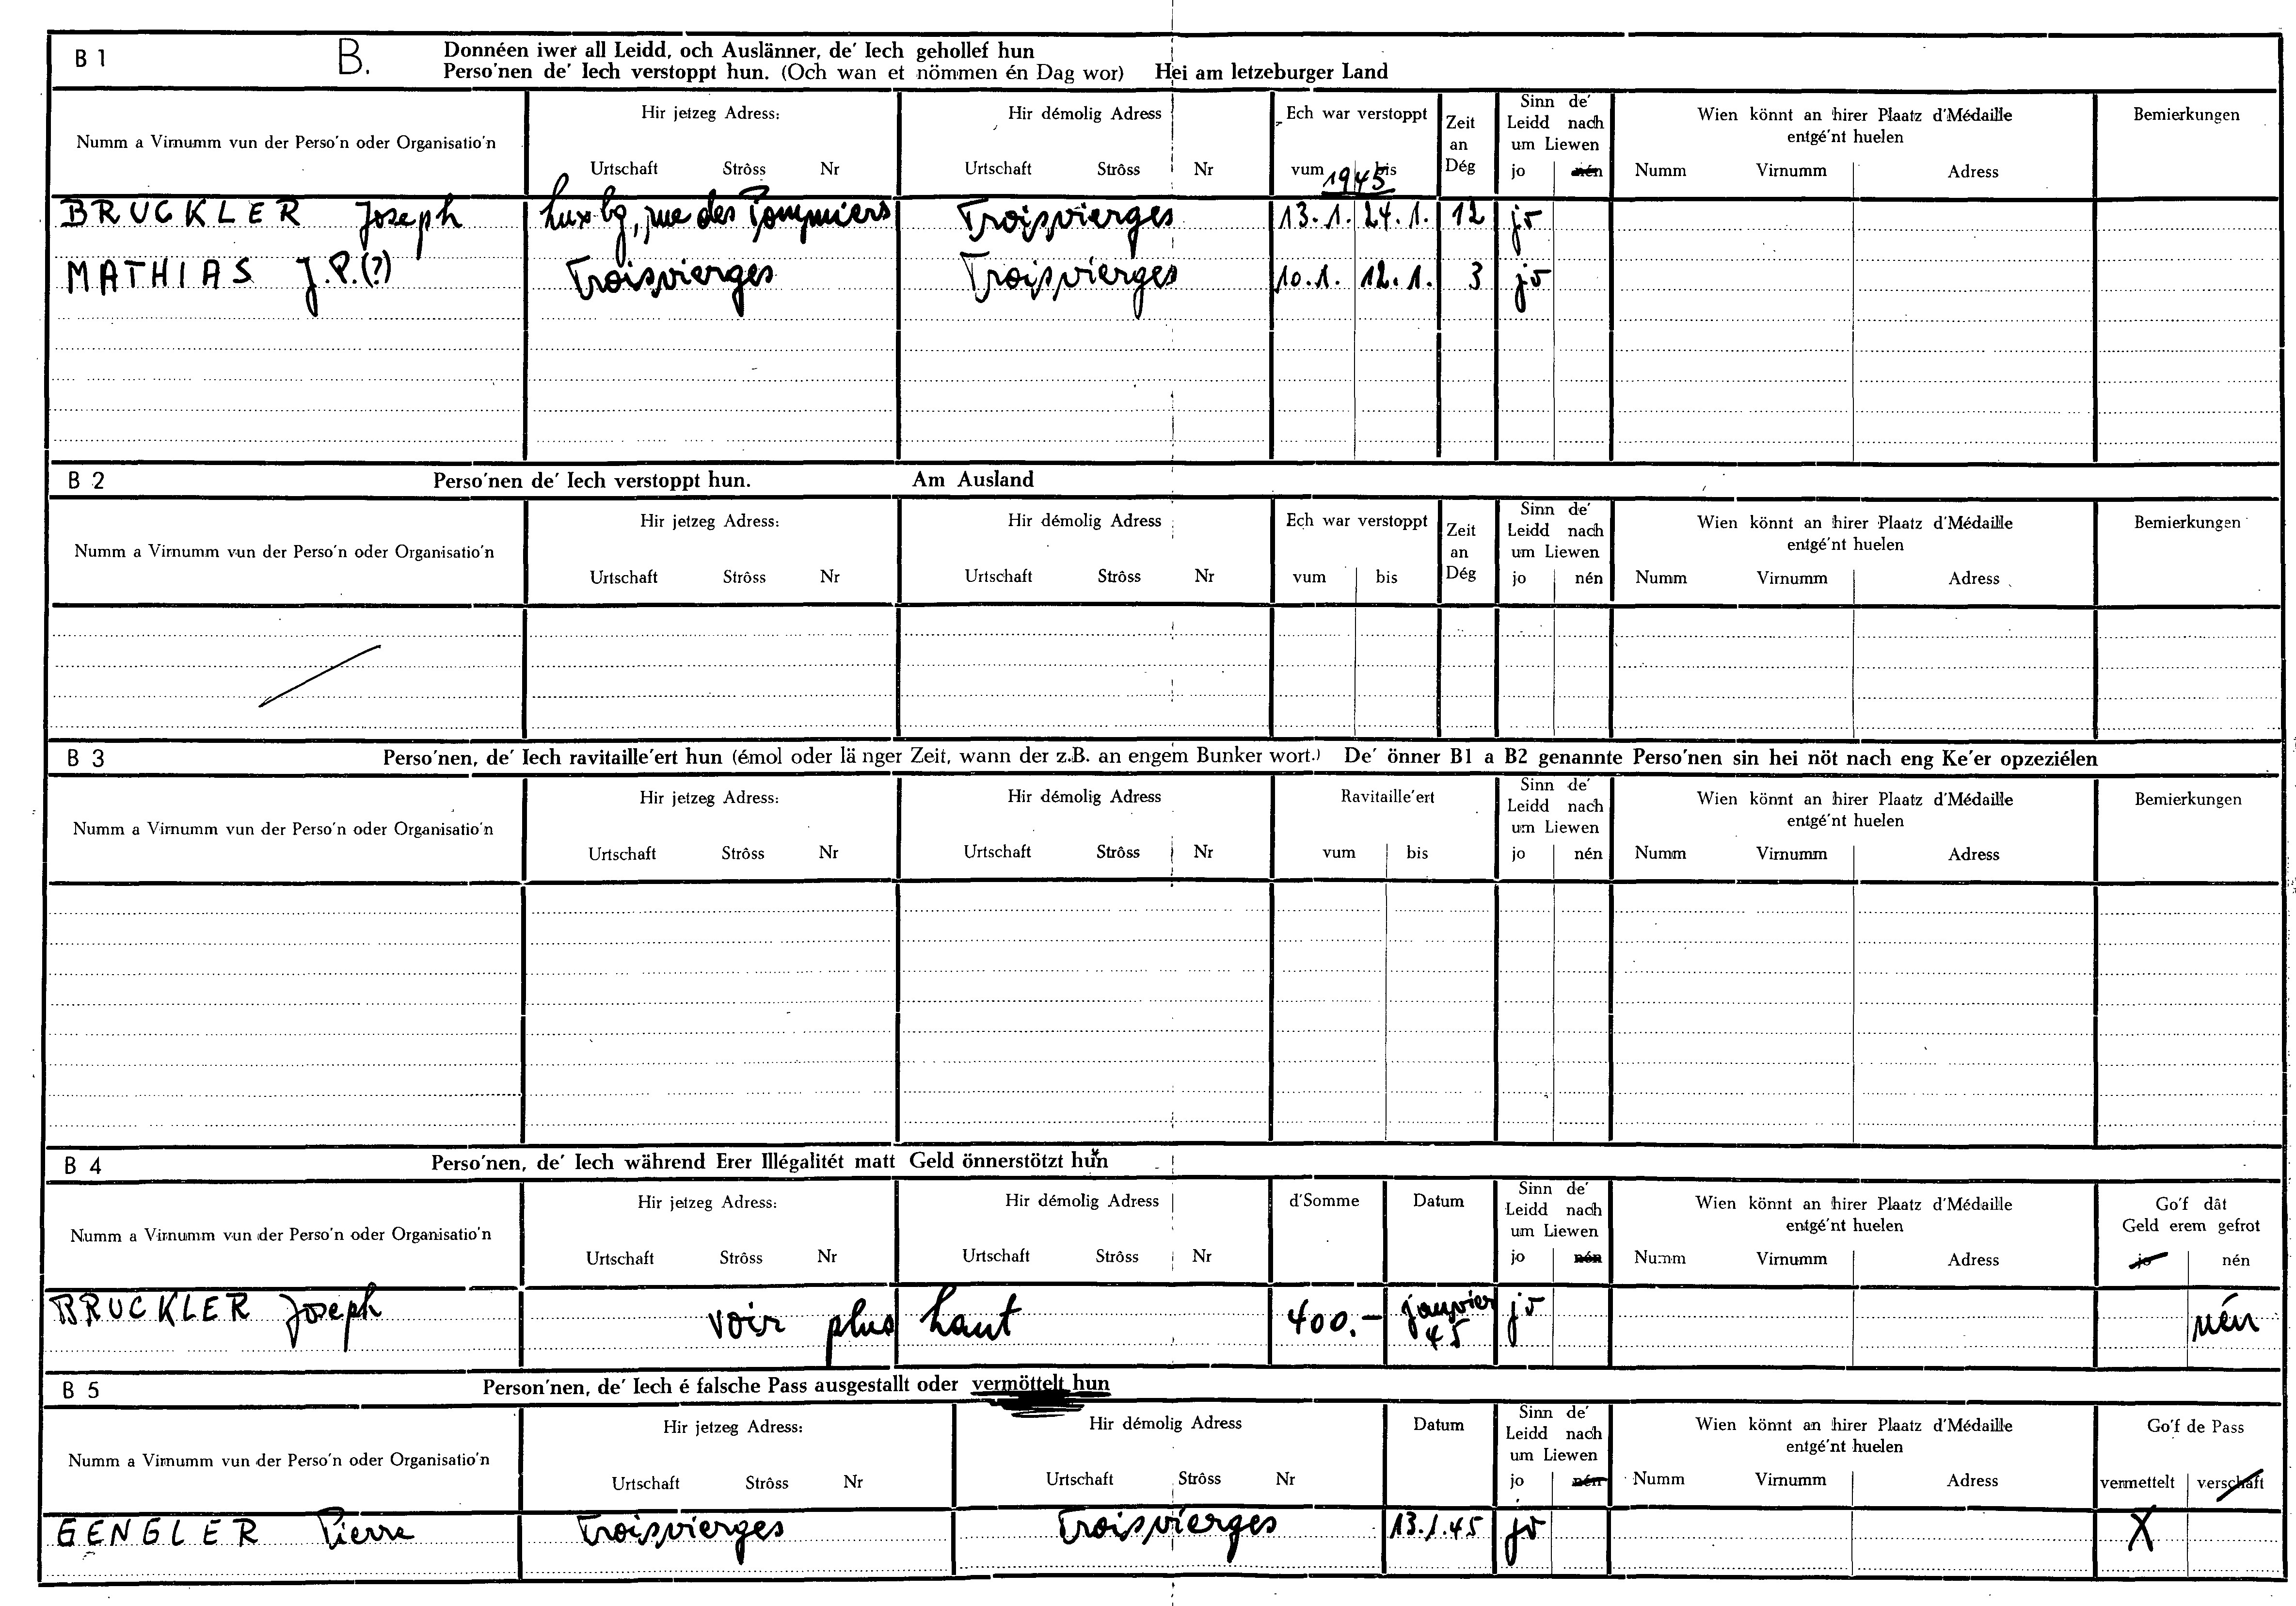 B 1 B. Donnéen iwer all Leidd, och Auslänner, de' Iech gehollef hun
Perso'nen de' Iech verstoppt hun. (Och wan et nömmen én Dag wor) Hei am letzeburger Land
Numm a Virnumm vun der Perso'n oder Organisatio'n
Hir jetzeg Adress:
Urtschaft Strôss Nr
Hir démolig Adress
Urtschaft Strôss Nr
Ech war verstoppt
vum bis
1945
Zeit
an
Dég
Sinn de'
Leidd nach
um Liewen
jo nén
Wien könnt an hirer Plaatz d'Médaille
entgé'nt huelen
Numm Virnumm Adress
Bemierkungen
BRUCKLER Joseph Luxbg, rue des Pommiers Troisvierges 13.1. 24.1. 12 jo
MATHIAS J.P.(?) Troisvierges Troisvierges 10.1. 12.1. 3 jo
B 2 Perso'nen de' Iech verstoppt hun. Am Ausland
Numm a Virnumm vun der Perso'n oder Organisatio'n
Hir jetzeg Adress:
Urtschaft Strôss Nr
Hir démolig Adress
Urtschaft Strôss Nr
Ech war verstoppt
vum bis
Zeit
an
Dég
Sinn de'
Leidd nach
um Liewen
jo nén
Wien könnt an hirer Plaatz d'Médaille
entgé'nt huelen
Numm Virnumm Adress
Bemierkungen
B 3 Perso'nen, de' Iech ravitaille'ert hun (émol oder länger Zeit, wann der z.B. an engem Bunker wort.) De' önner B1 a B2 genannte Perso'nen sin hei nöt nach eng Ke'er opzeziélen
Numm a Virnumm vun der Perso'n oder Organisatio'n
Hir jetzeg Adress:
Urtschaft Strôss Nr
Hir démolig Adress
Urtschaft Strôss Nr
Ravitaille'ert
vum bis
Sinn de'
Leidd nach
um Liewen
jo nén
Wien könnt an hirer Plaatz d'Médaille
entgé'nt huelen
Numm Virnumm Adress
Bemierkungen
B 4 Perso'nen, de' Iech während Erer Illégalitét matt Geld önnerstötzt hun
Numm a Virnumm vun der Perso'n oder Organisatio'n
Hir jetzeg Adress:
Urtschaft Strôss Nr
Hir démolig Adress
Urtschaft Strôss Nr
d'Somme
Datum
Sinn de'
Leidd nach
um Liewen
jo nén
Wien könnt an hirer Plaatz d'Médaille
entgé'nt huelen
Numm Virnumm Adress
Go'f dât
Geld erem gefrot
jo nén
BRUCKLER Joseph voir plus haut 400.- janvier 45 jo nén
B 5 Person'nen, de' Iech é falsche Pass ausgestallt oder vermöttelt hun
Numm a Virnumm vun der Perso'n oder Organisatio'n
Hir jetzeg Adress:
Urtschaft Strôss Nr
Hir démolig Adress
Urtschaft Strôss Nr
Datum
Sinn de'
Leidd nach
um Liewen
jo nén
Wien könnt an hirer Plaatz d'Médaille
entgé'nt huelen
Numm Virnumm Adress
Go'f de Pass
vermettelt verschaft
GENGLER Pierre Troisvierges Troisvierges 13.1.45 jo X